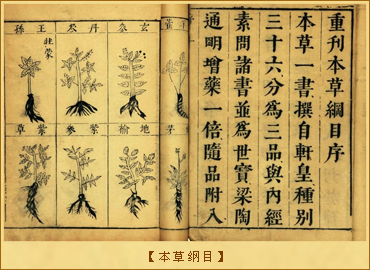 重刊本草綱目序
本草一書撰自軒皇種別
三十六分為三品與內經
素問諸書並為世寶梁陶
通明增藥一倍隨品附入
玄參
丹參
王孫
牡蒙
地榆
紫參
紫草
【本草纲目】